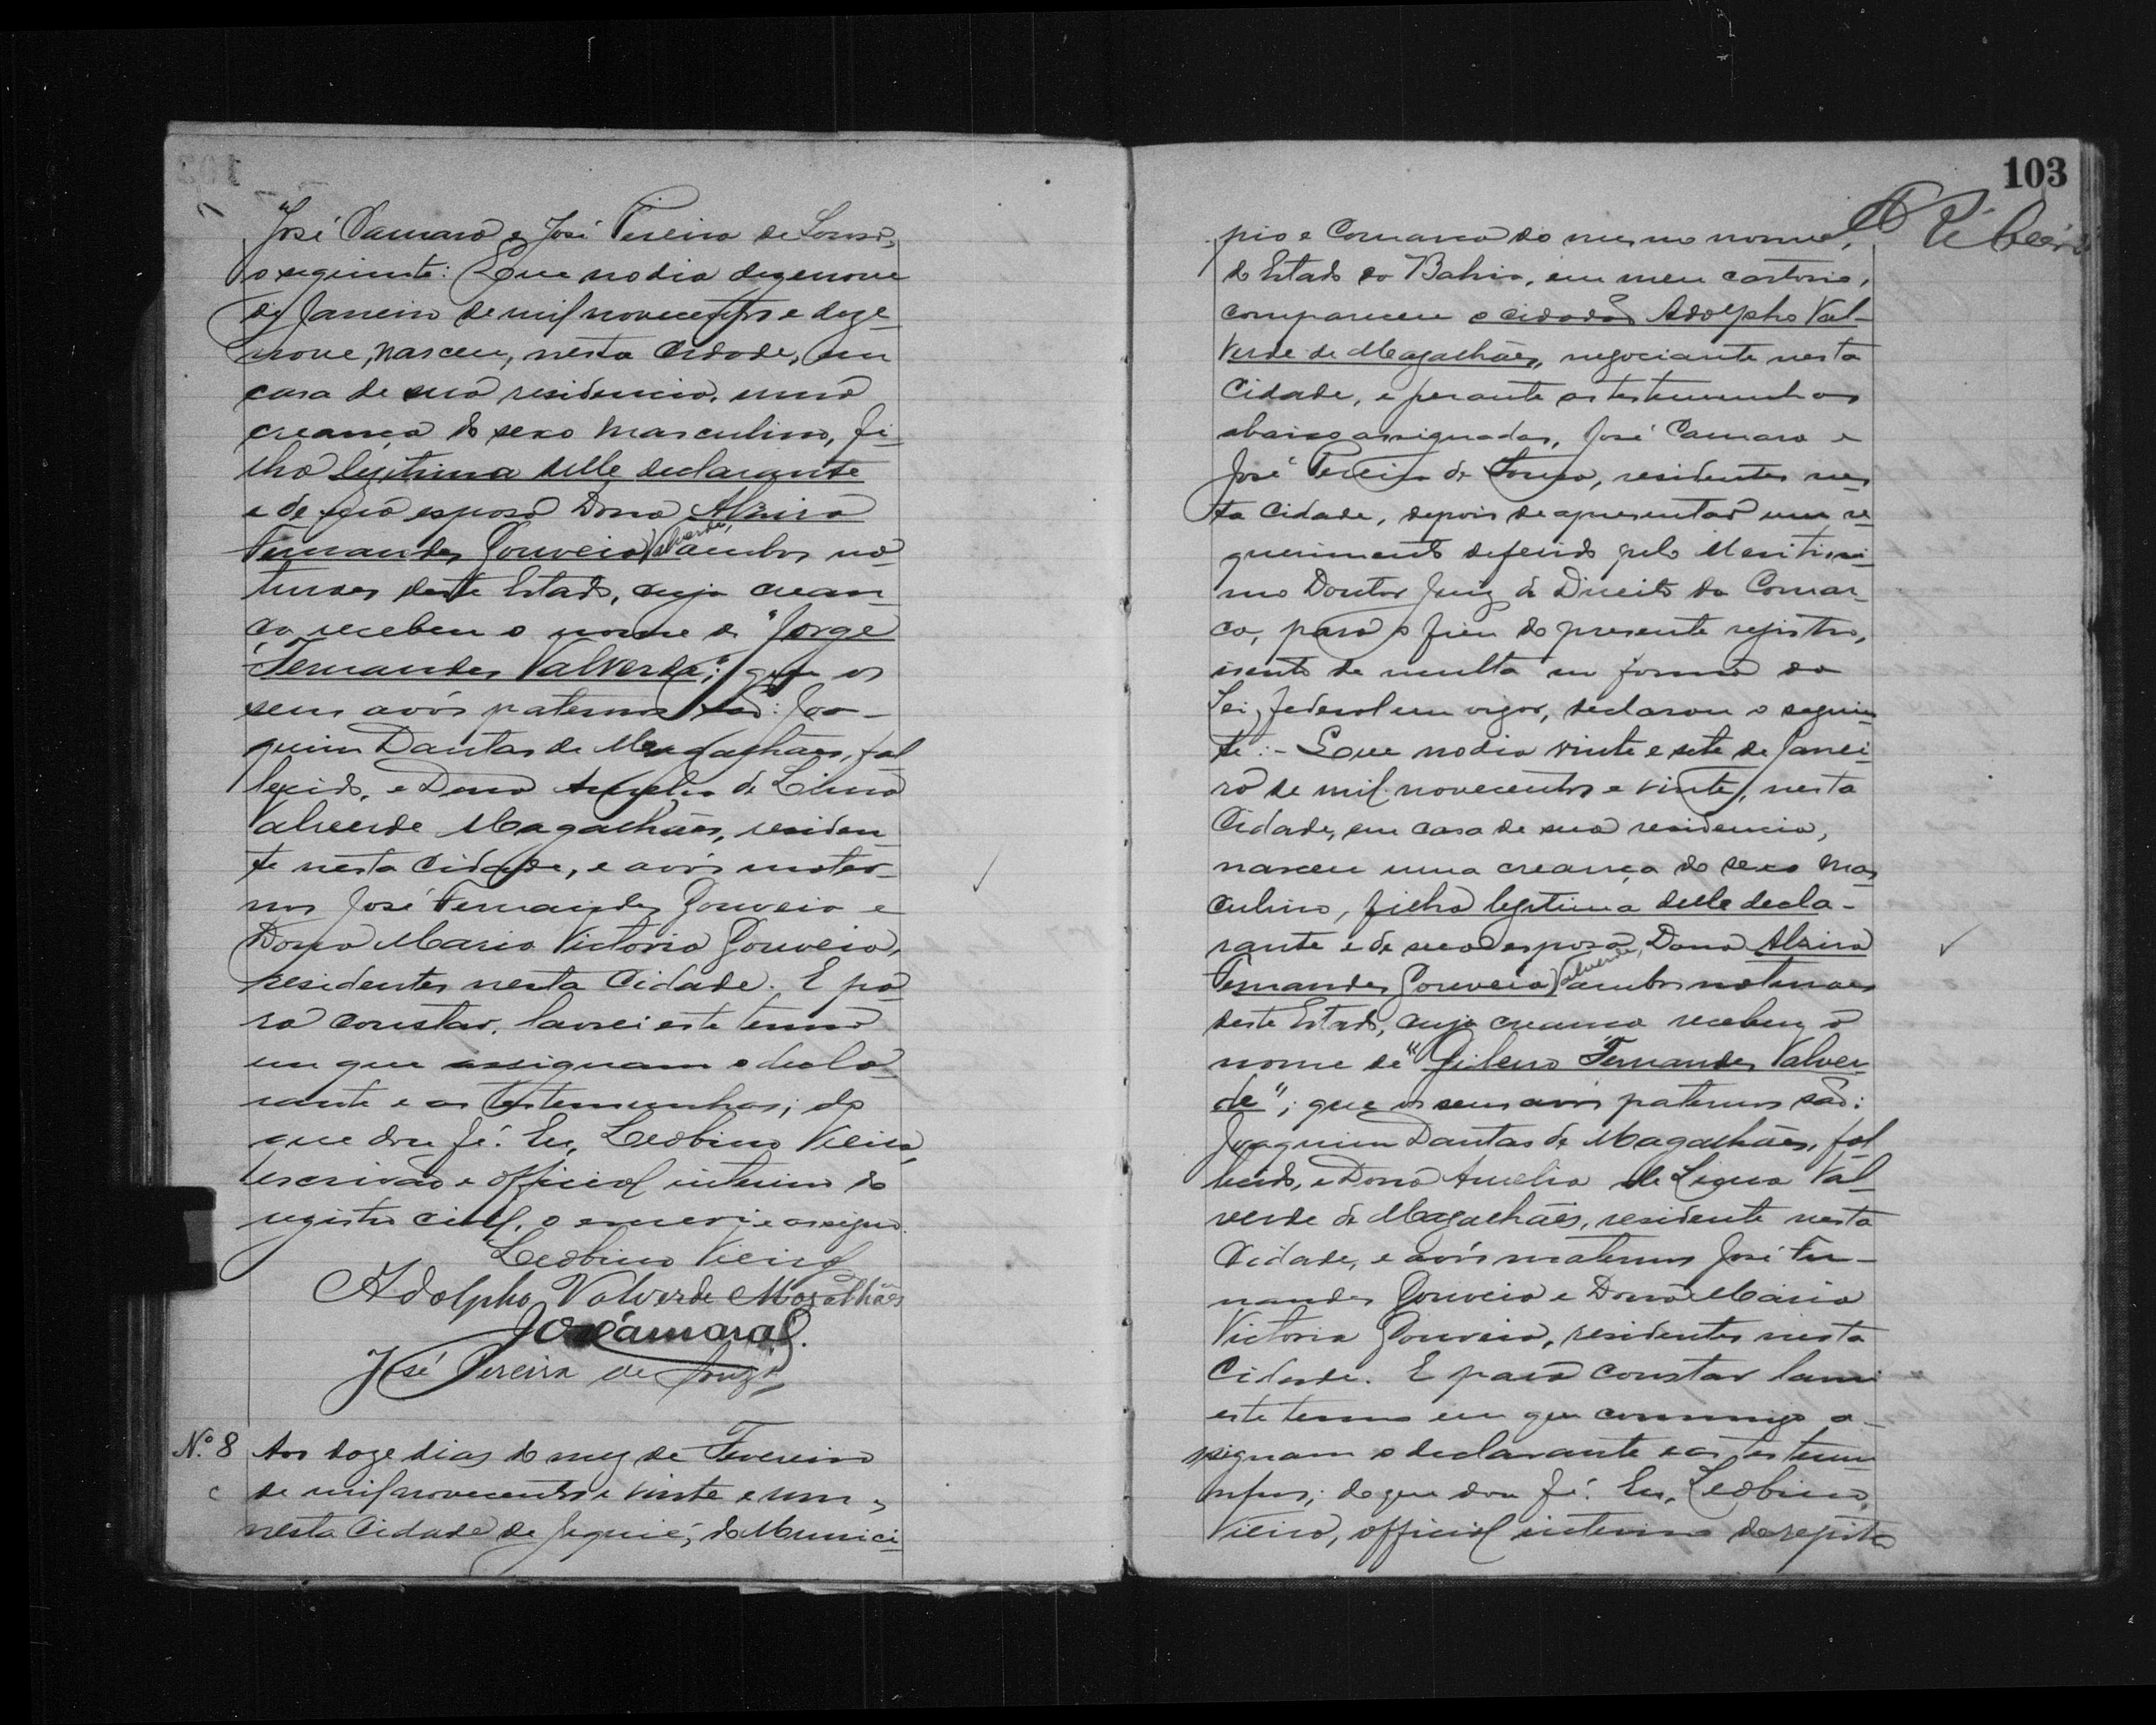 José Camara e José Pereira de Souza,
o seguinte: Que no dia dezenove
de Janeiro de mil novecentos e deze-
nove, nasceu, nesta Cidade, em
casa de sua residencia, uma
creança do sexo masculino, fi-
lha legitima delle declarante
e de sua esposa Dona Alzira
Fernandes Gouveia Valverde, ambos na-
turaes deste Estado, cuja crean-
ça recebeu o nome de "Jorge
Fernandes Valverde"; que os
seus avós paternos são: Joa-
quim Dantas de Magalhães, fal-
lecido, e Dona Amelia de Lima
Valverde Magalhães, residen-
te nesta Cidade, e avós mater-
nos José Fernandes Gouveia e
Dona Maria Victoria Gouveia,
residentes nesta Cidade. E pa-
ra constar, lavrei este termo
em que assignam o decla-
rante e as testemunhas; do
que dou fé. Eu, Leobino Vieira,
escrivão e official interino do
registro civil, o escrevi e assigno.
Leobino Vieira
Adolpho Valverde Magalhães
José Camara
José Pereira de Souza
Nº 8 Aos doze dias do mez de Fevereiro
de mil novecentos e vinte e um,
nesta Cidade de Jequié, do Munici-
103
Ribeiro
pio e Comarca do mesmo nome,
do Estado da Bahia, em meu cartorio,
compareceu o cidadão Adolpho Val-
verde de Magalhães, negociante nesta
Cidade, e perante as testemunhas
abaixo assignadas, José Camara e
José Pereira de Souza, residentes nes-
ta Cidade, depois de apresentar um re-
querimento deferido pelo Meritissi-
mo Doutor Juiz de Direito da Comar-
ca, para o fim do presente registro,
isento de multa em forma da
Lei federal em vigor, declarou o seguin-
te:- Que no dia vinte e sete de Janei-
ro de mil novecentos e vinte, nesta
Cidade, em casa de sua residencia,
nasceu uma creança do sexo mas-
culino, filha legitima delle decla-
rante e de sua esposa, Dona Alzira
Fernandes Gouveia Valverde, ambos naturaes
deste Estado, cuja creança recebeu o
nome de "Gileno Fernandes Valver-
de"; que os seus avós paternos são:
Joaquim Dantas de Magalhães, fal-
lecido, e Dona Amelia de Lima Val-
verde de Magalhães, residente nesta
Cidade, e avós maternos José Fer-
nandes Gouveia e Dona Maria
Victoria Gouveia, residentes nesta
Cidade. E para constar lavrei
este termo em que commigo a-
ssignam o declarante e as testemu-
nhas; do que dou fé. Eu, Leobino
Vieira, official interino do registro